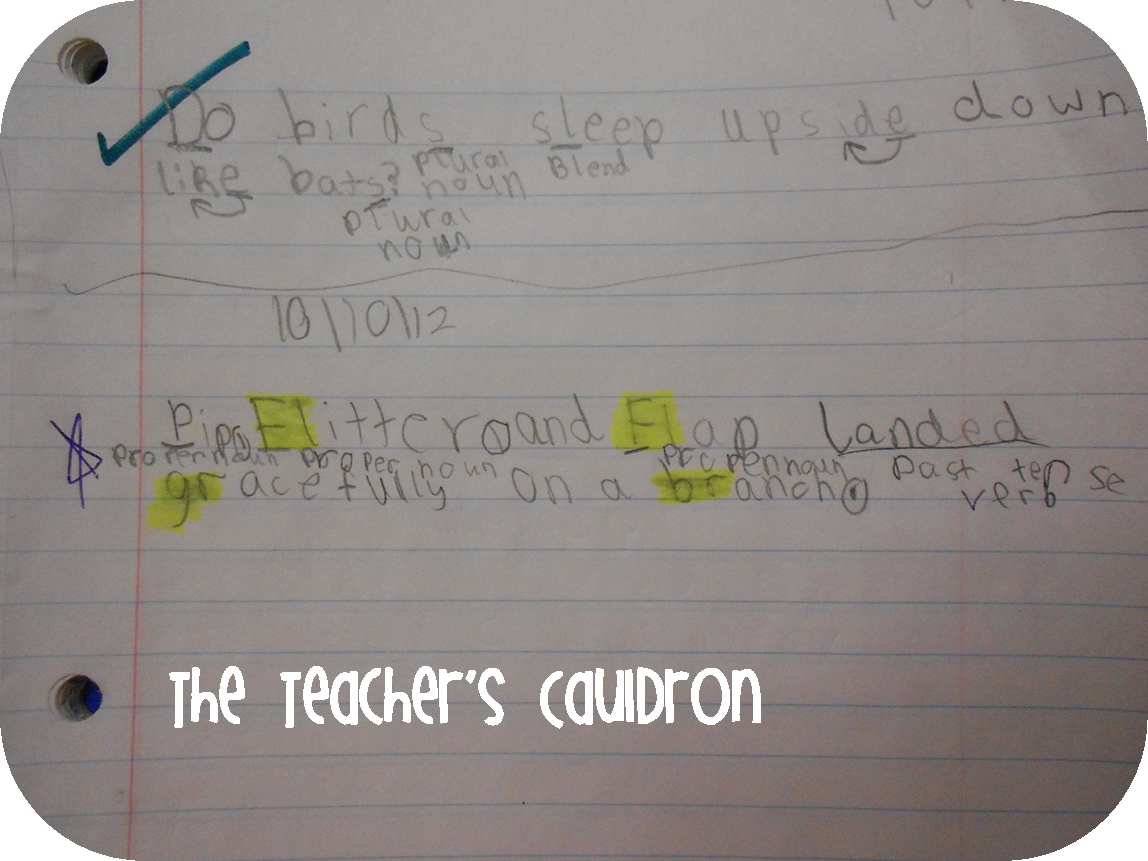 Do birds sleep upside down
plural Blend
like bats? noun
plural
noun
10/10/12
Pip, Flitter, and Flap landed
proper noun proper noun proper noun past tense
gracefully on a branch. verb
The Teacher's Cauldron